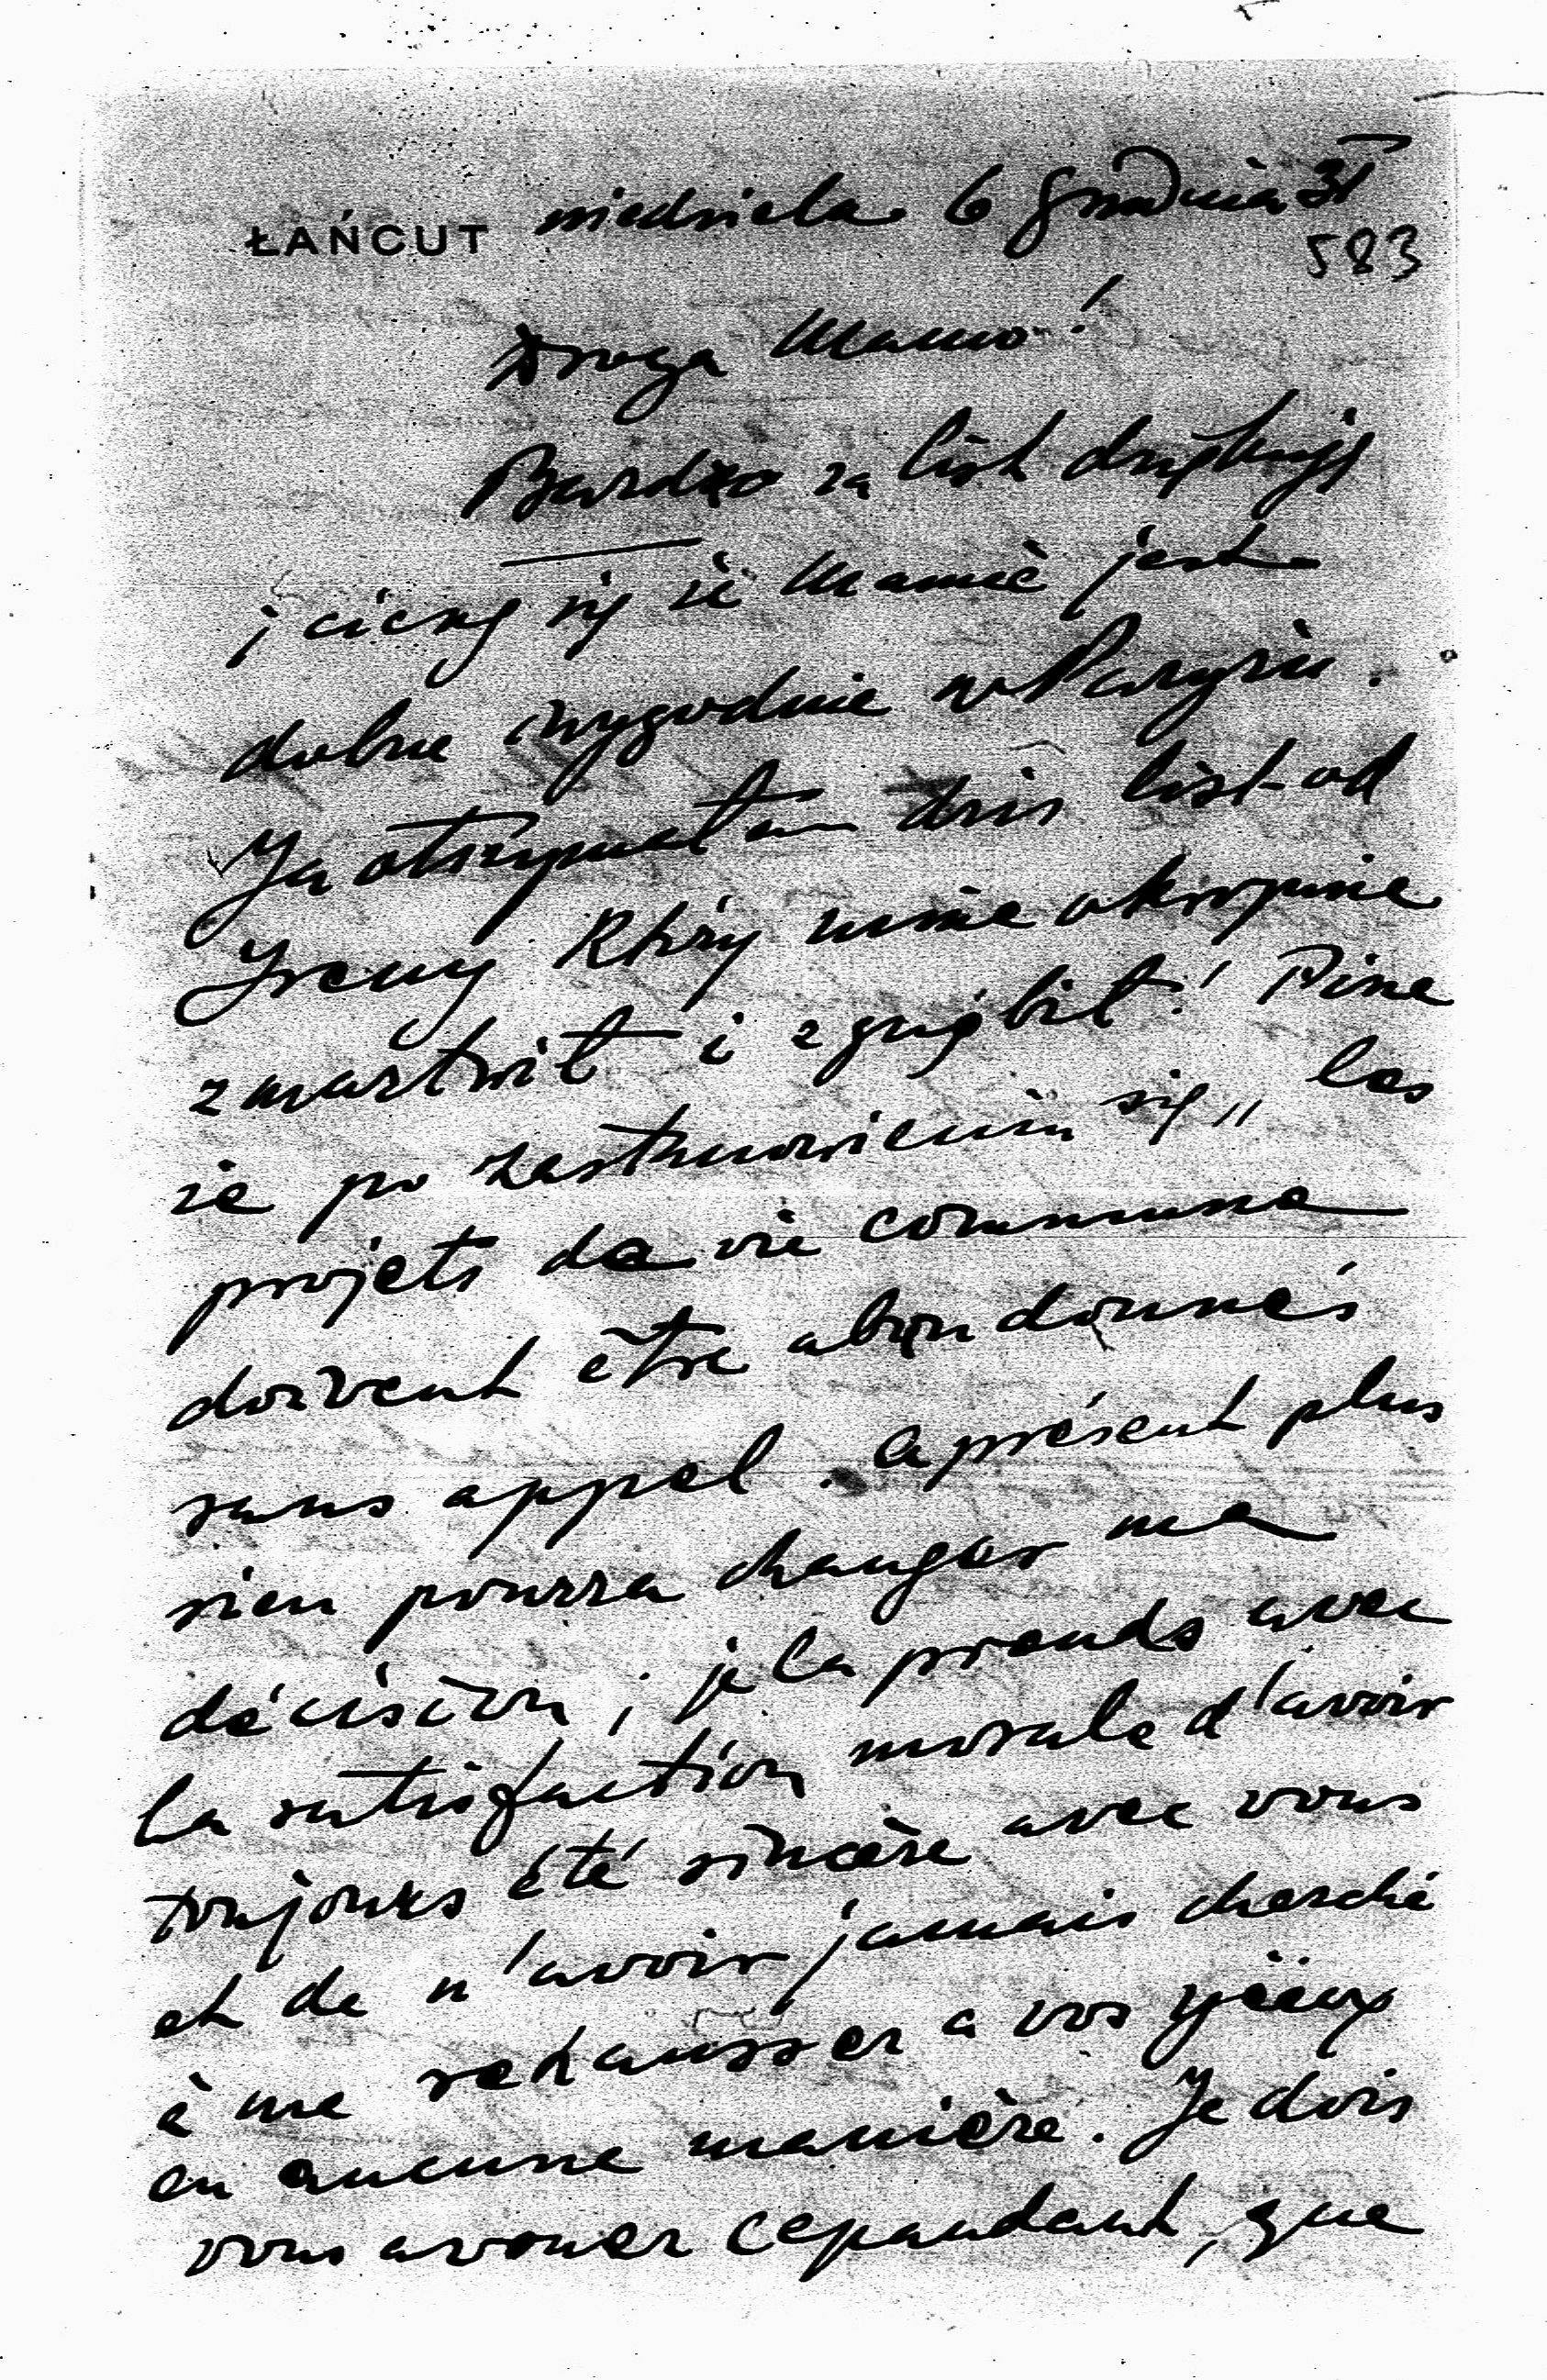 ŁAŃCUT niedziela 6 Grudnia 31
583
Droga Mamo!
Bardzo za list dziękuję
i cieszę się że Mamie jest
dobrze i wygodnie w Paryżu.
Ja otrzymałem dziś list od
Ireny który mnie okropnie
zmartwił i zgnębił! Pisze
że po zastanowieniu się „les
projets de vie commune
doivent être abandonnés
sans appel. A présent plus
rien pourra changer ma
décision, je la prends avec
la satisfaction morale d'avoir
toujours été sincère avec vous
et de n'avoir jamais cherché
à me rehausser a vos yeux
en aucune manière. Je dois
vous avouer cependant, que